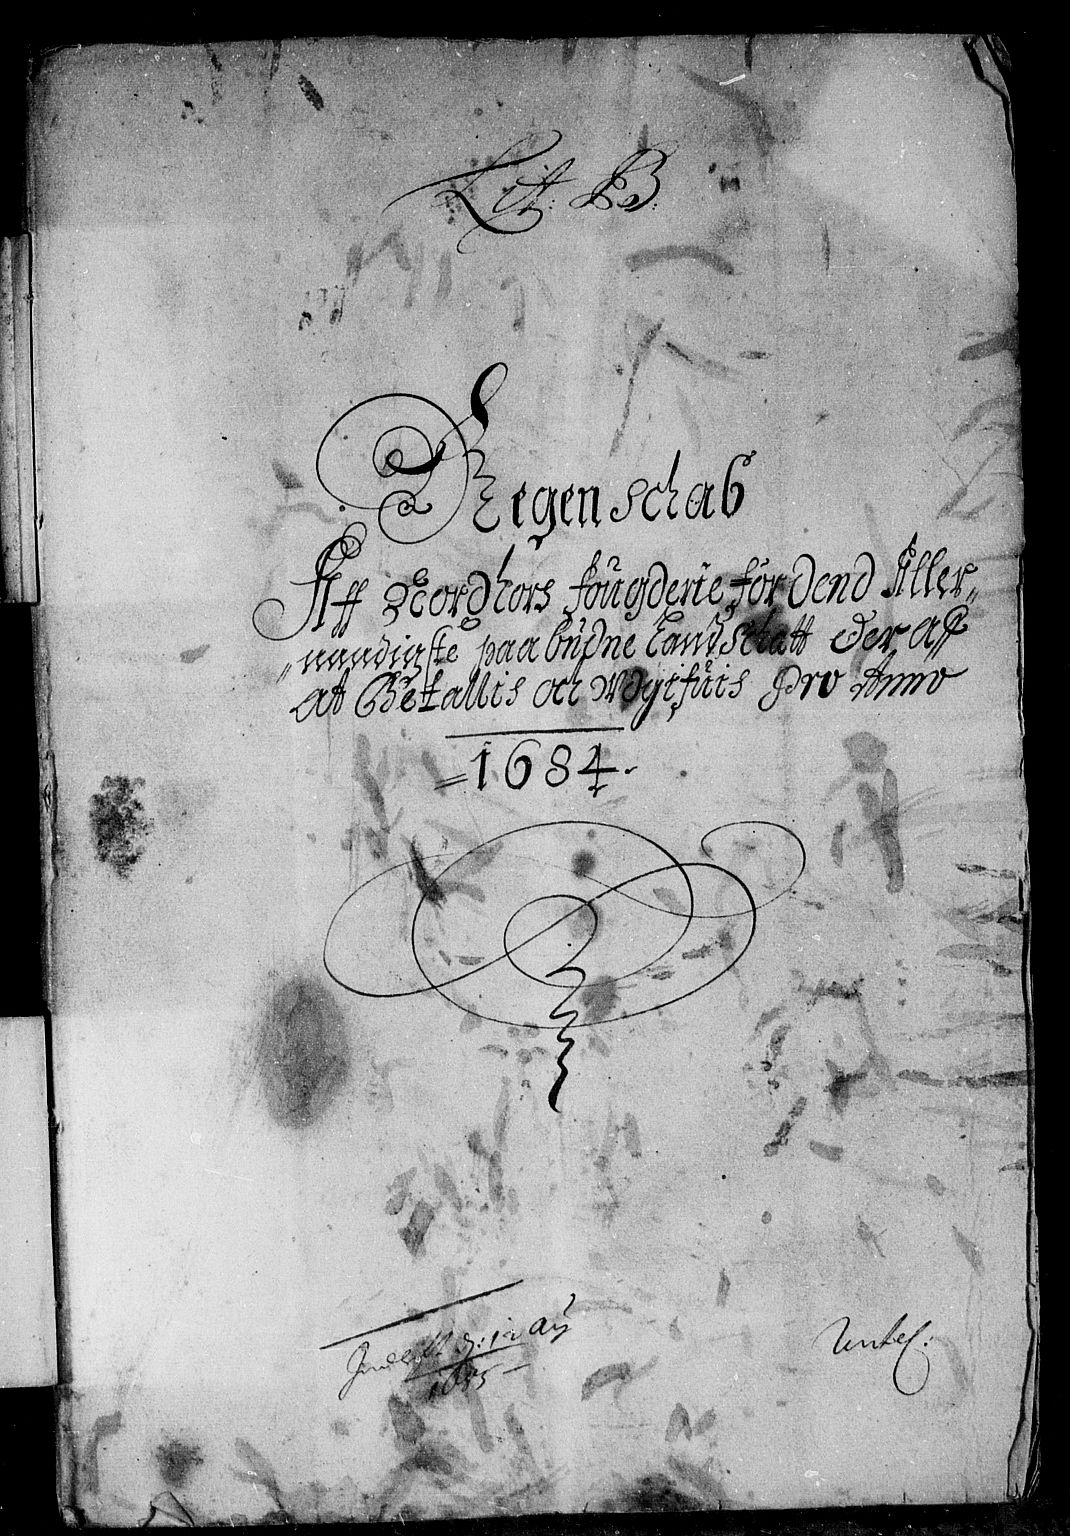 Lit: B:
Regenschab
Aff Nordhors fougderie for Dend Aller„
„naadigste paabudne Landschatt Der aff
at Betallis och Udgifuis Pro Anno
1684.
d: 12 aug
1685